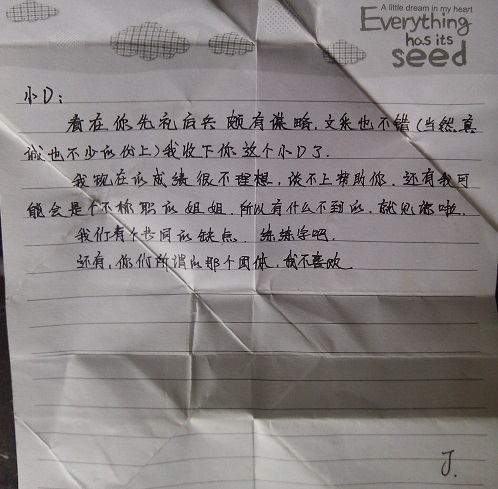 A little dream in my heart
Everything
has its
seed
小D:
看在你先礼后兵颇有谋略,文采也不错(当然,真
诚也不少的份上)我收下你这个小D了.
我现在的成绩很不理想,谈不上帮助你.还有我可
能会是个不称职的姐姐.所以有什么不到的,就见谅啦.
我们有个共同的缺点.练练字吧.
还有,你们所谓的那个团体,我不喜欢.
J.